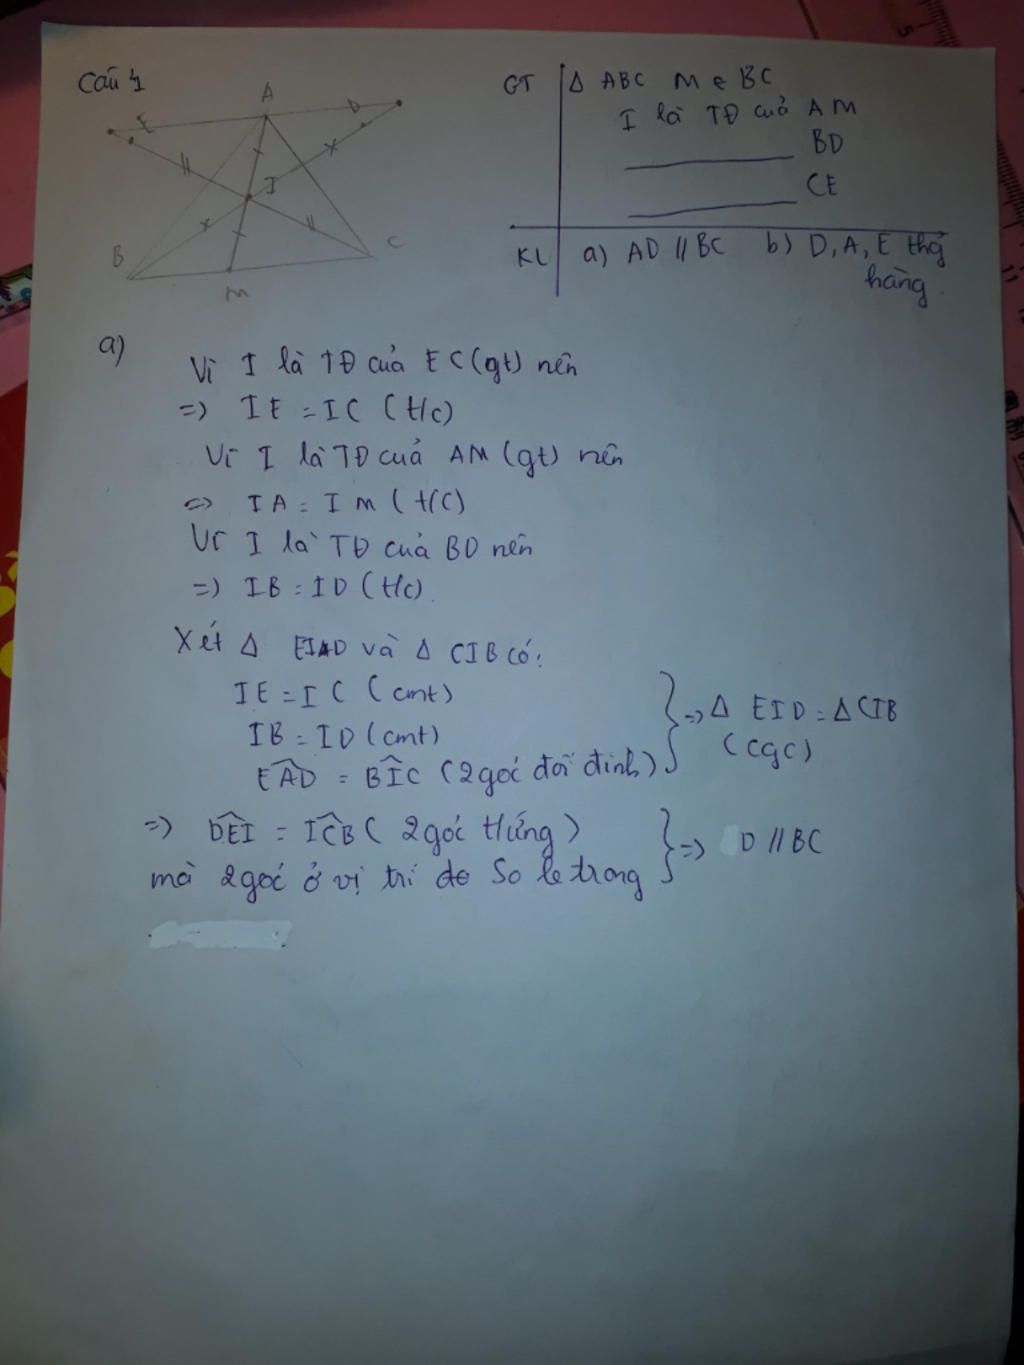 Câu 1
A
E
D
I
B
C
M
GT Δ ABC M ∈ BC
I là TĐ của AM
BD
CE
KL a) AD // BC b) D, A, E thg̉
hàng.
a)
Vì I là TĐ của EC (gt) nên
=> IE = IC (t/c)
Vì I là TĐ của AM (gt) nên
=> IA = IM (t/c)
Vì I là TĐ của BD nên
=> IB = ID (t/c).
Xét Δ EID và Δ CIB có:
IE = IC (cmt)
IB = ID (cmt)
=> Δ EID = Δ CIB
(cgc)
EÂD = BÎC (2 góc đối đỉnh)
=> DÊI = IĈB ( 2 góc tứng )
mà 2 góc ở vị trí so le trong
=> D // BC